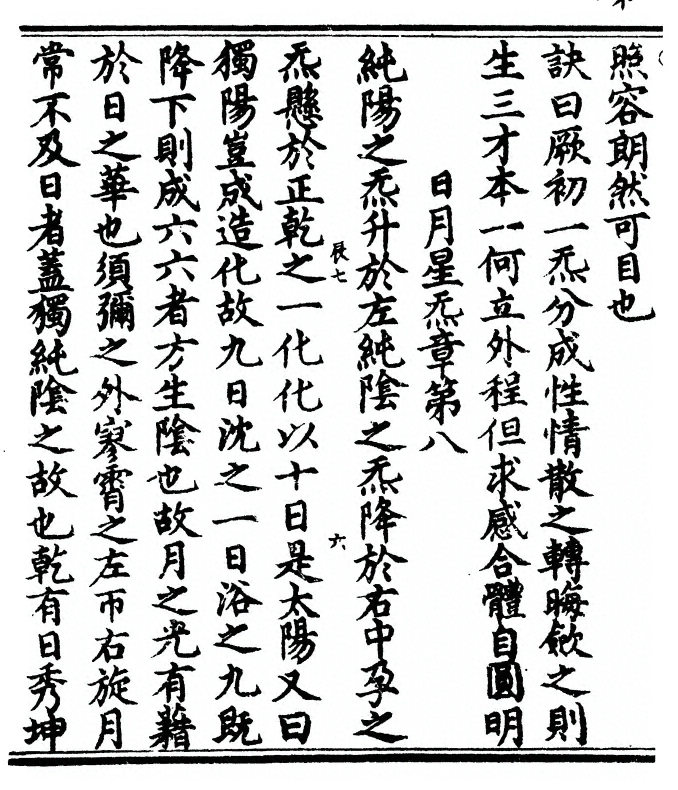 照容朗然可目也
訣曰厥初一炁分成性情散之轉晦斂之則
生三才本一何立外程但求感合體自圓明
日月星炁章第八
純陽之炁升於左純陰之炁降於右中孕之
炁懸於正乾之一化化以十日是太陽又曰
辰七
六
獨陽豈成造化故九日沈之一日浴之九既
降下則成六六者方生陰也故月之光有藉
於日之華也須彌之外寥霄之左帀右旋月
常不及日者蓋獨純陰之故也乾有日秀坤